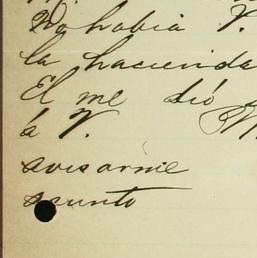 había V.
la hacienda
El me dió
á V.
avisarme
asunto